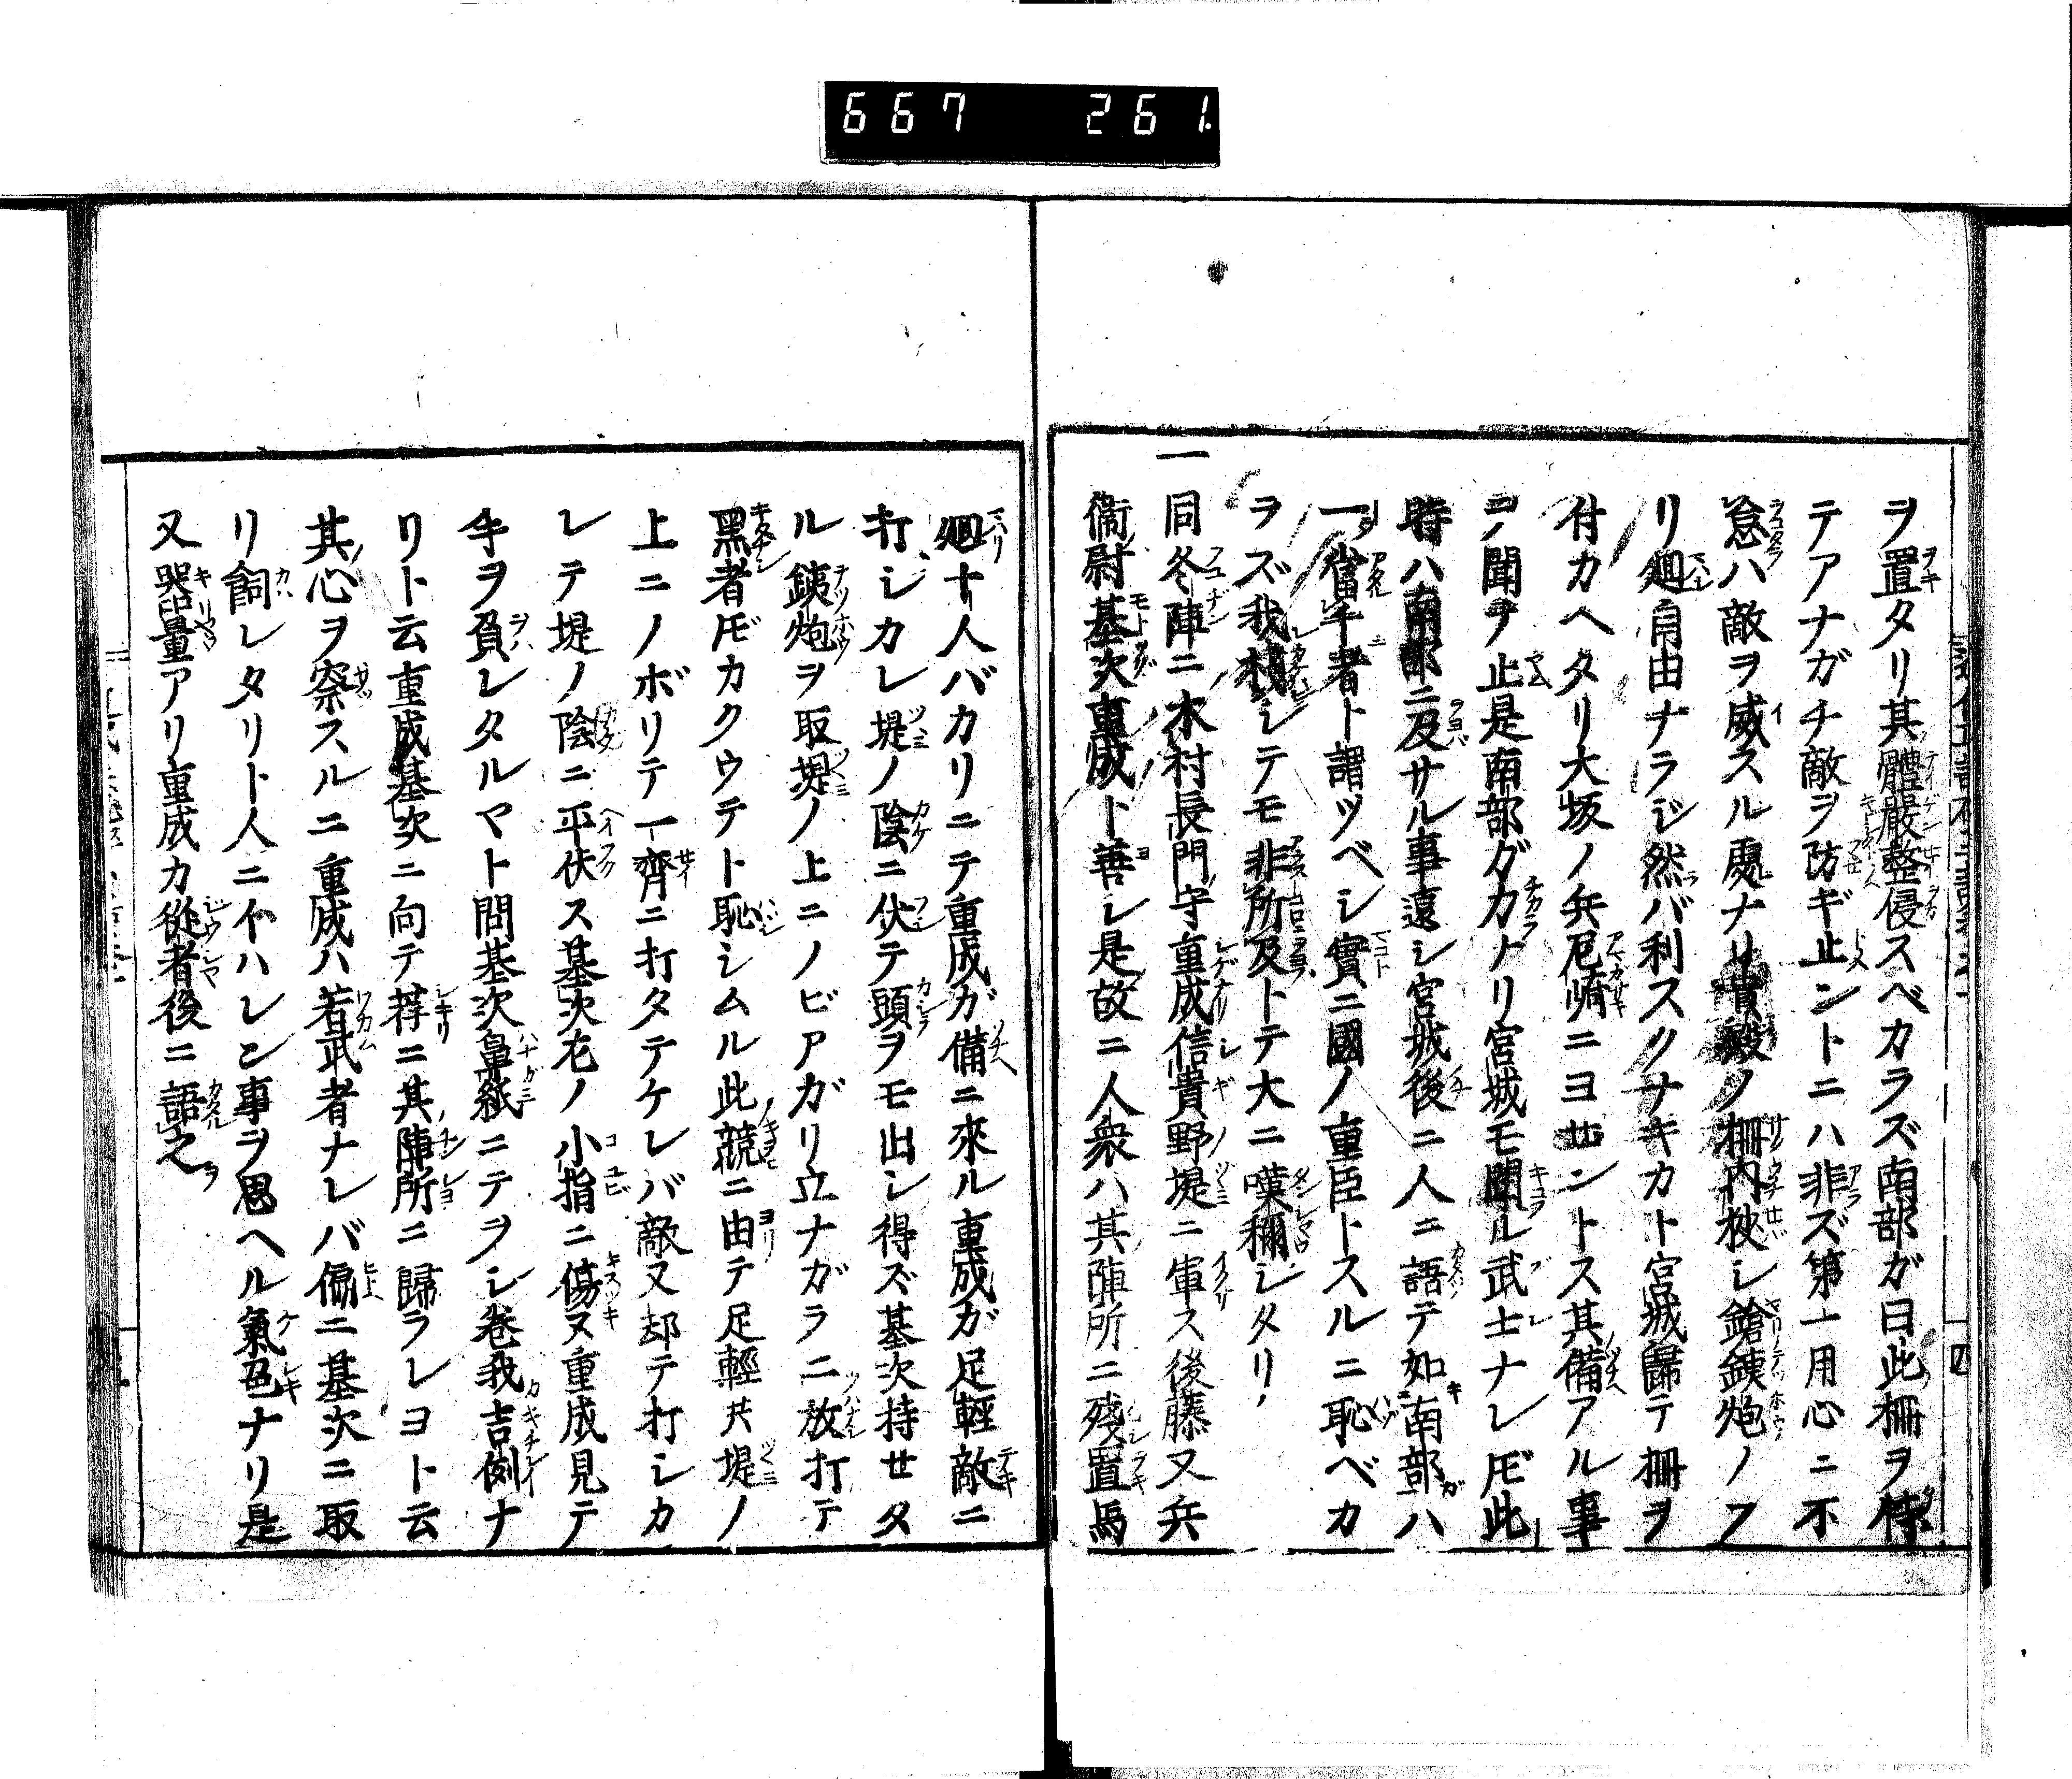 667 261
ヲ置タリ其體嚴整侵スベカラズ南部ガ曰此柵ヲ
テアナガチ敵ヲ防ギ止ントニハ非ズ第一用心ニ不
怠ハ敵ヲ威スル處ナリ ノ柵内狹シ鎗鐵炮ノフ
リ廻自由ナラジ然バ利スクサキカト宮城歸テ柵ヲ
付カヘタリ大坂ノ兵尼崎ニヨせントス其備アル事
ヲ聞テ止是南部ガカナリ宮城モ聞ル武士ナレ𪜈此
時ハ南部ニ及サル事遠シ宮城後ニ人ニ語テ如南部ハ
一當千者ト謂ツベシ實ニ國ノ重臣トスルニ恥ベカ
ヲズ我 シテモ非所及トテ大ニ嘆稱シタリ
一同冬陣ニ木村長門守重成信貴野堤ニ軍ス後藤又兵
衞尉基次重成ト善シ是故ニ人衆ハ其陣所ニ殘置馬
廻十人バカリニテ重成ガ備ニ來ル重成ガ足輕敵ニ
打シカレ堤ノ陰ニ伏テ頭ヲモ出シ得ズ基次持せタ
ル鐵炮ヲ取堤ノ上ニノビアガリ立ナガラニ放打テ
黑者𪜈カクウテト恥シムル此競ニ由テ足輕共堤ノ
上ニノボリテ一齊ニ打タテケレバ敵又却テ打シカ
レテ堤ノ陰ニ平伏ス基次左ノ小指ニ傷ヌ重成見テ
手ヲ負レタルマト問基次鼻紙ニテヲシ卷我吉例ナ
リト云重成基次ニ向テ荐ニ其陣所ニ歸ラレヨト云
其心ヲ察スルニ重成ハ若武者ナレバ偏ニ基次ニ取
リ飼レタリト人ニイハレン事ヲ思ヘル氣色ナリ是
又器量アリ重成カ從者後ニ語之